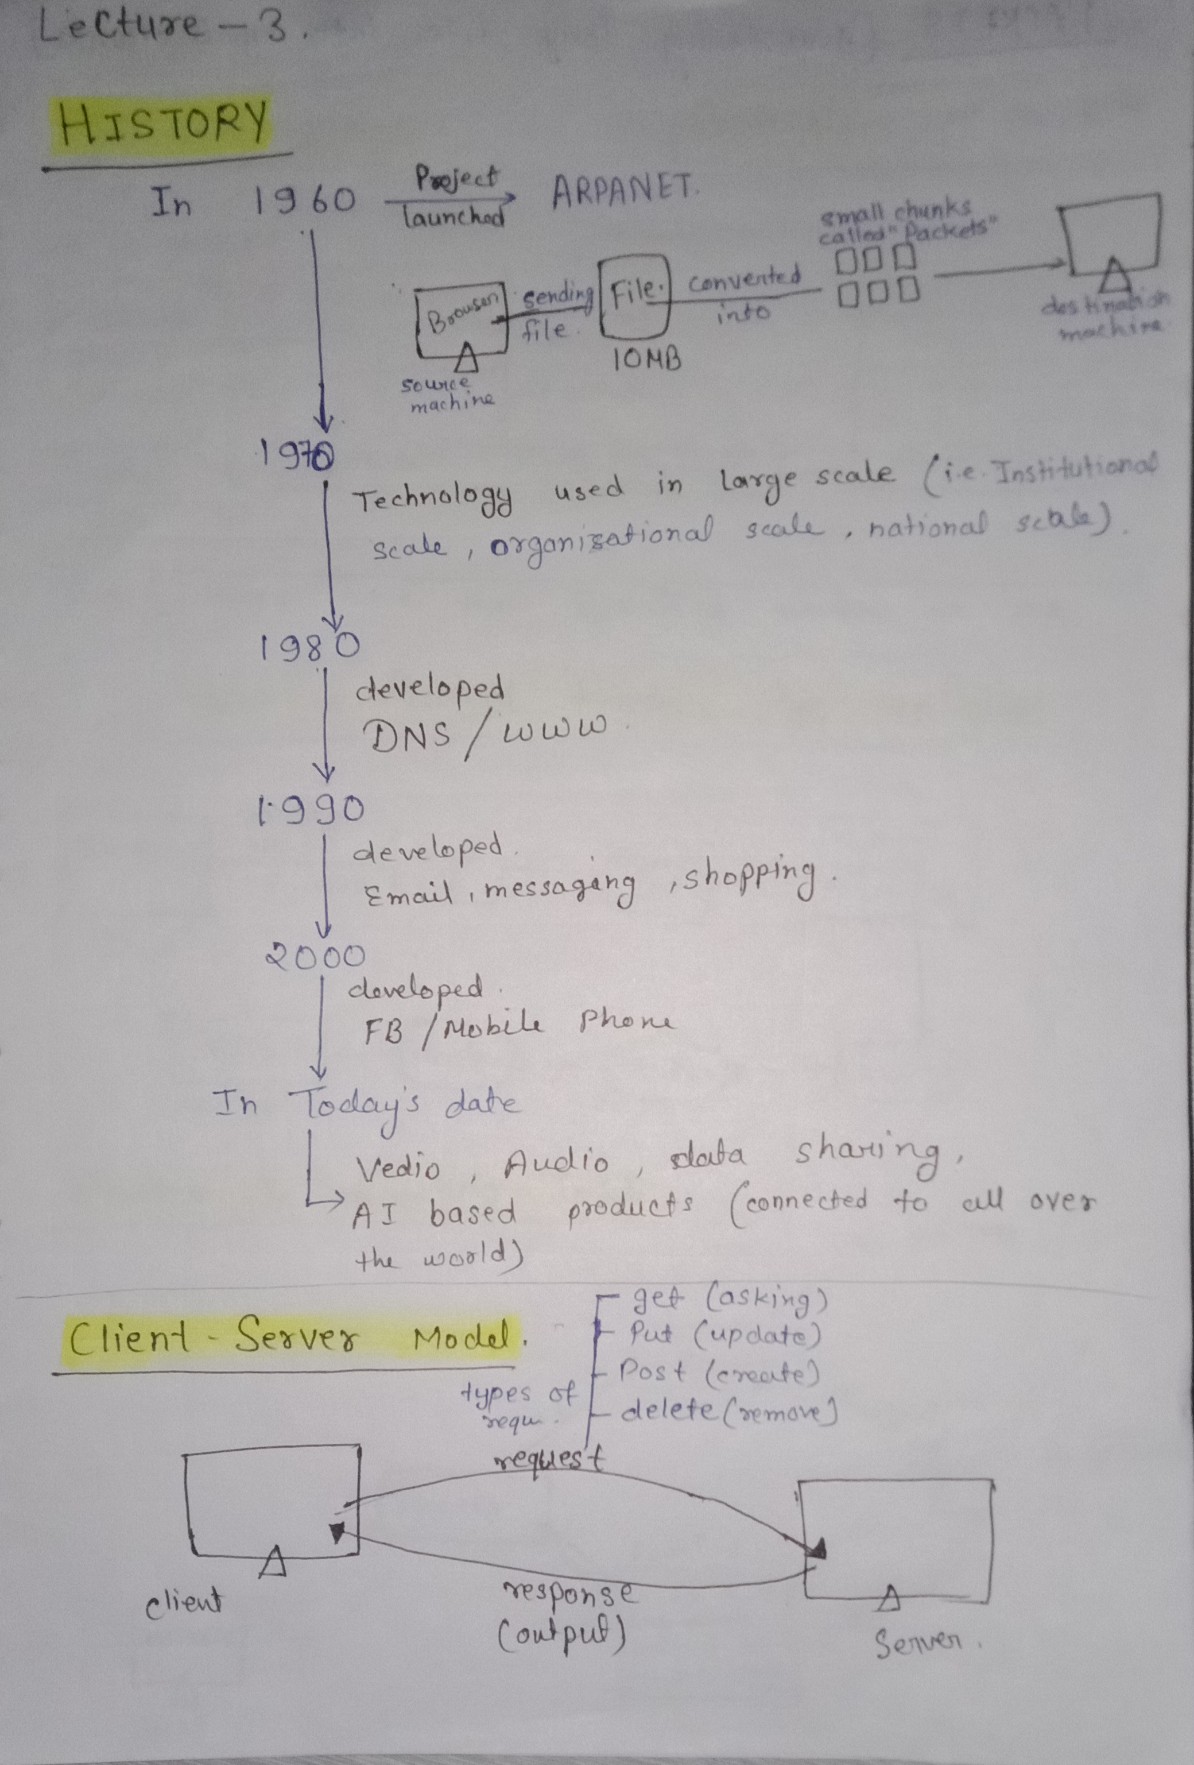 Lecture - 3.
HISTORY
In 1960 Project launched ARPANET.
small chunks
called "Packets"
Browser
sending
file.
File.
10MB
converted
into
source
machine
destination
machine
1970
Technology used in large scale (i.e. Institutional
scale, organisational scale, national scale).
1980
developed
DNS / www.
1990
developed.
Email, messaging, shopping.
2000
developed.
FB / Mobile Phone
In Today's date
Vedio, Audio, data sharing,
AI based products (connected to all over
the world)
Client - Server Model.
types of
requ.
get (asking)
Put (update)
Post (create)
delete (remove)
request
response
(output)
client
Server.